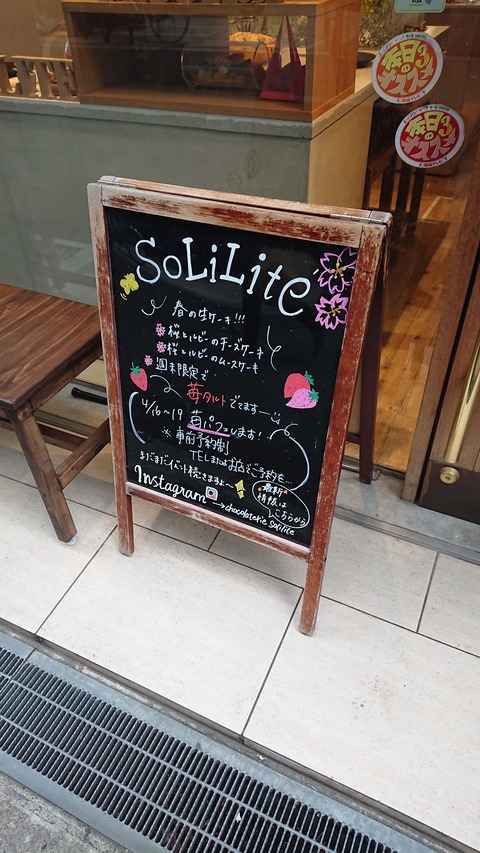 SoLiLite
春の生ケーキ!!!
桜とルビーのチーズケーキ
桜とルビーのムースケーキ
週末限定で
苺タルトでてます
4/16~19 苺パフェします!
※事前予約制
TELまたはお店でご予約を…
まだまだイベント続きますよ~
Instagram
→chocolaterie solilite
最新
情報は
こちらから
本日の
オススメ
本日の
オススメ